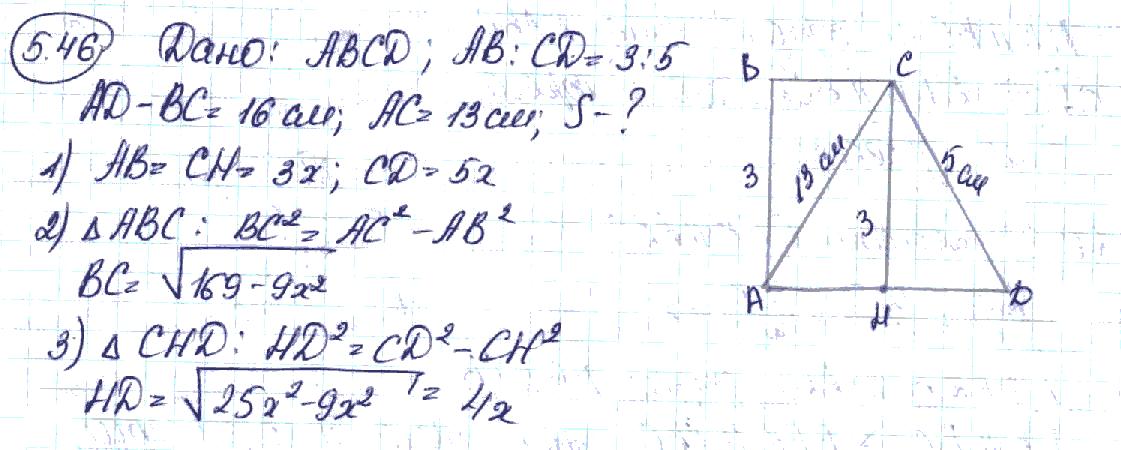 5.46 Дано: ABCD; AB:CD=3:5
AD-BC=16см; AC=13см; S-?
1) AB=CH=3x; CD=5x
2) △ABC: BC²=AC²-AB²
BC=√169-9x²
3) △CHD: HD²=CD²-CH²
HD=√25x²-9x²=4x
B C
3 13 см 3 5см
A H D